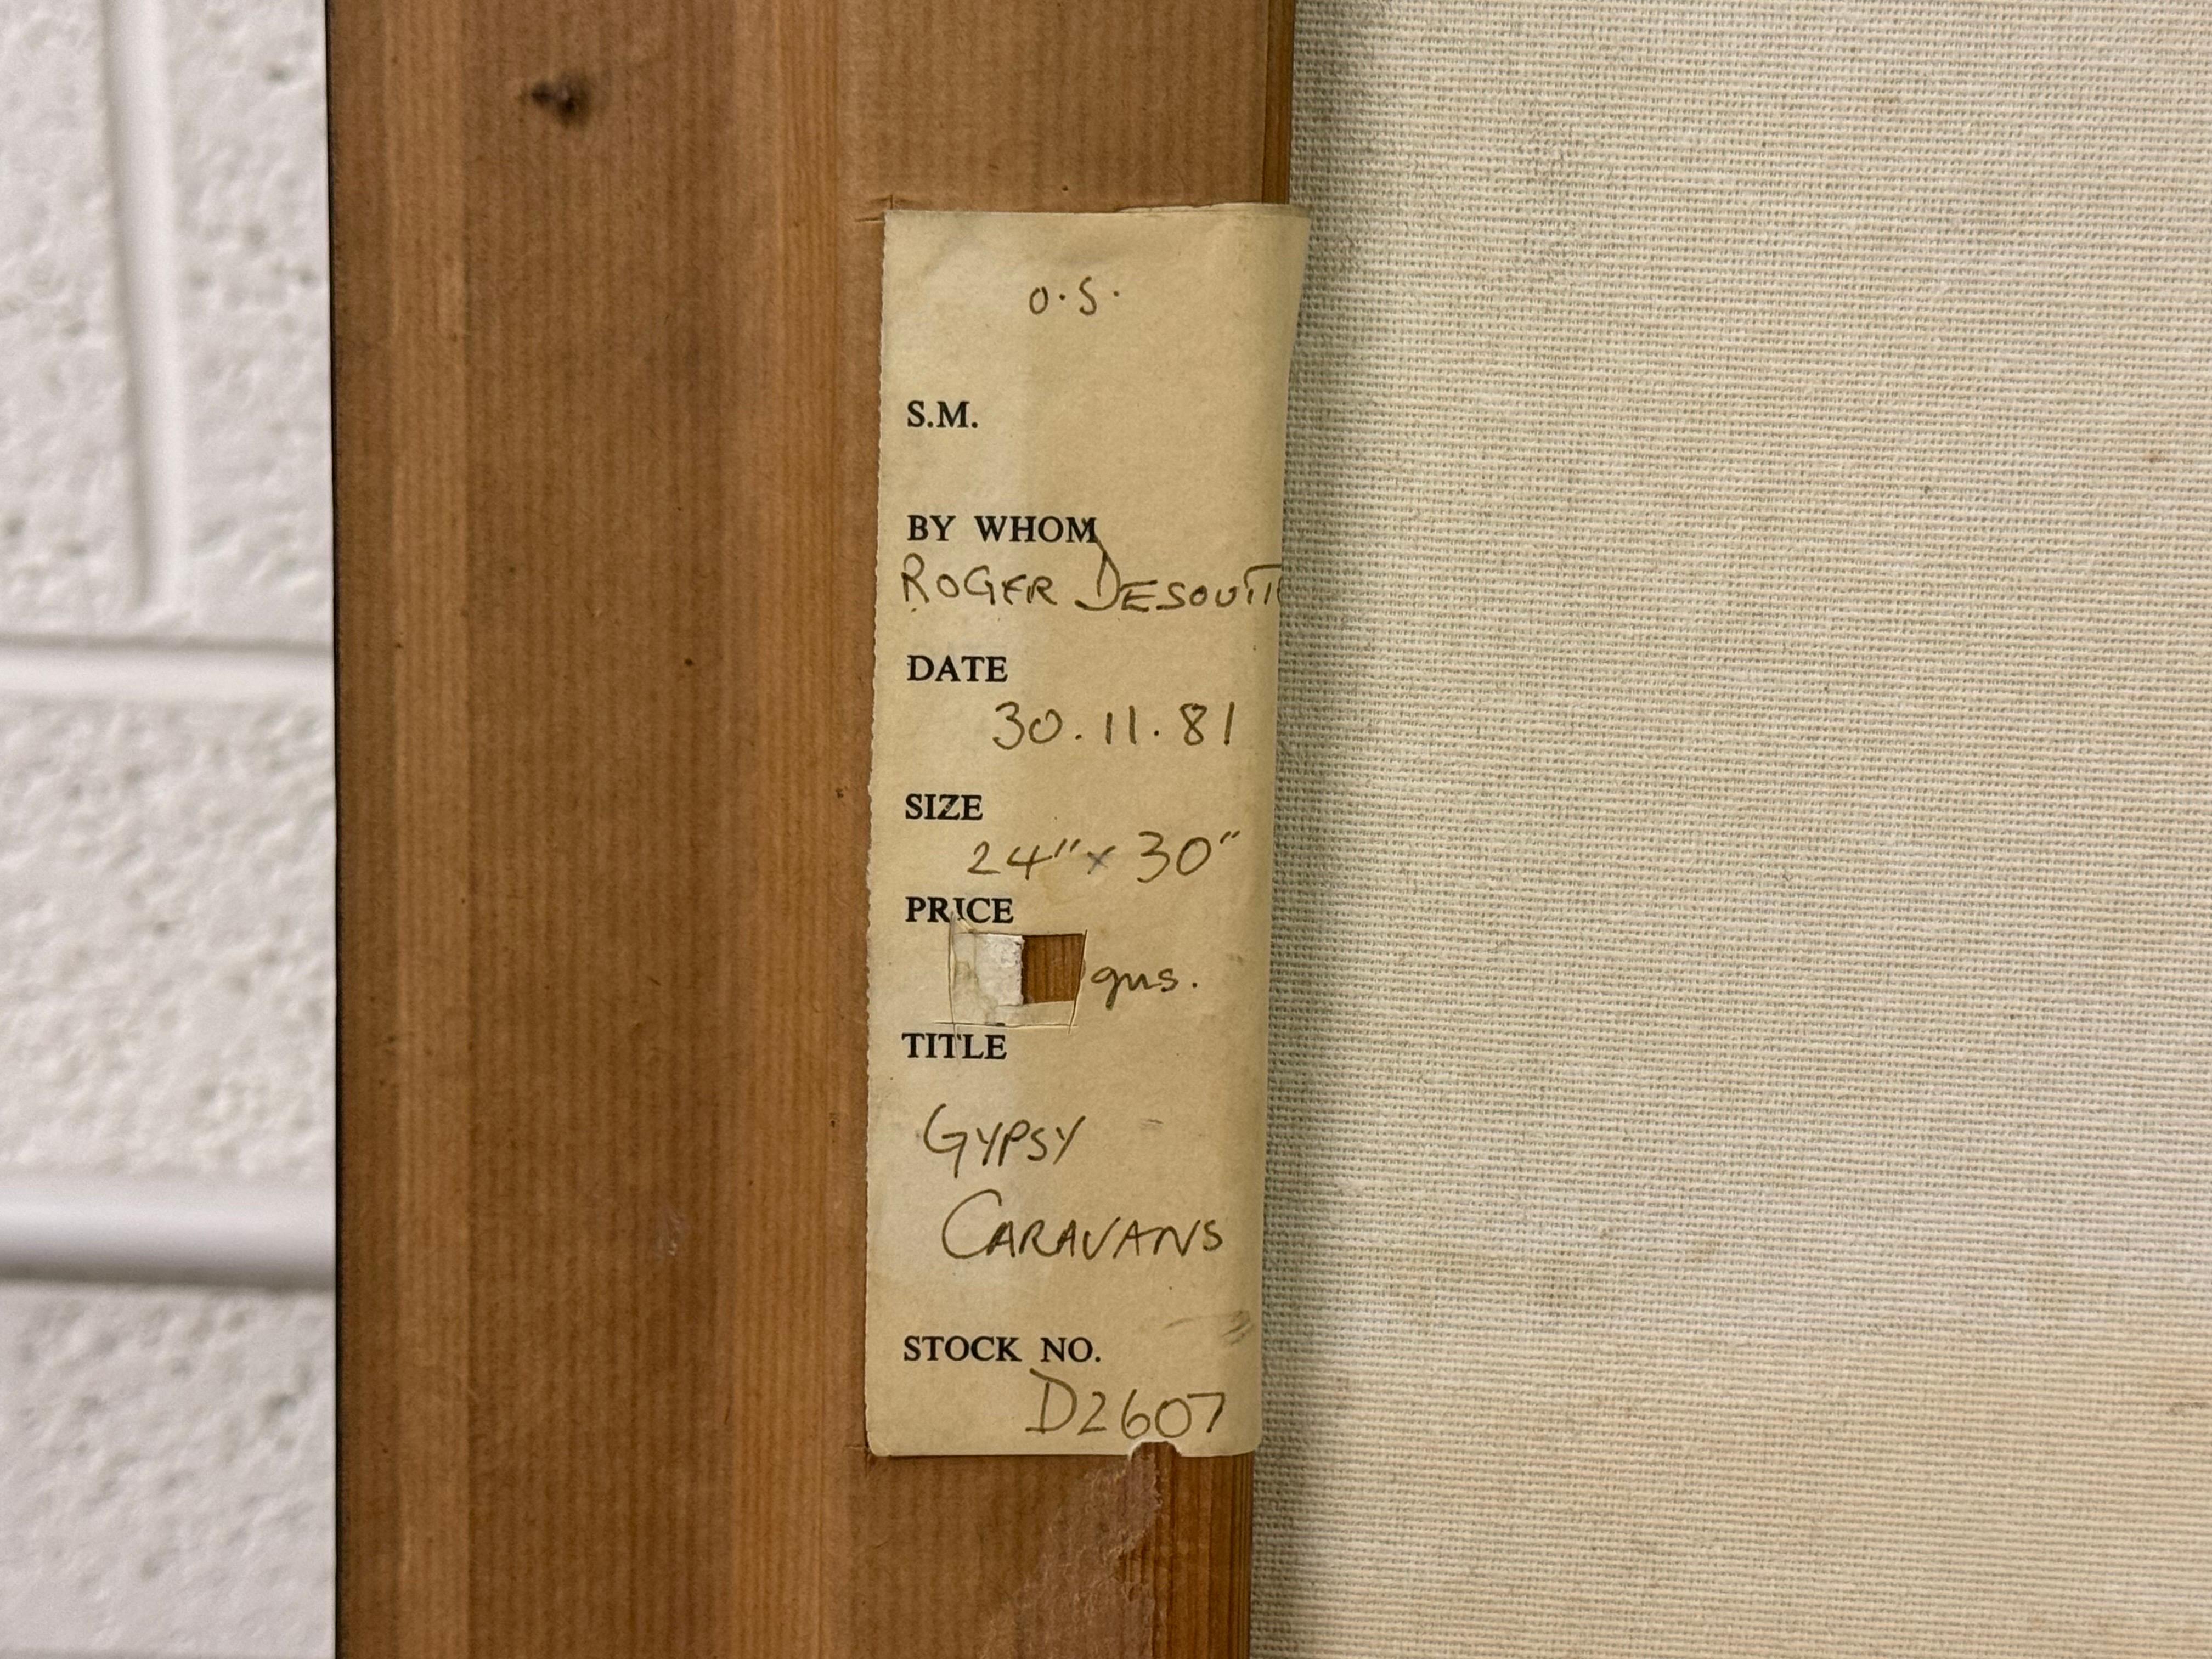 O.S.
S.M.
BY WHOM
ROGER DESOUTT
DATE
30.11.81
SIZE
24" x 30"
PRICE
gns.
TITLE
GYPSY
CARAVANS
STOCK NO.
D2607